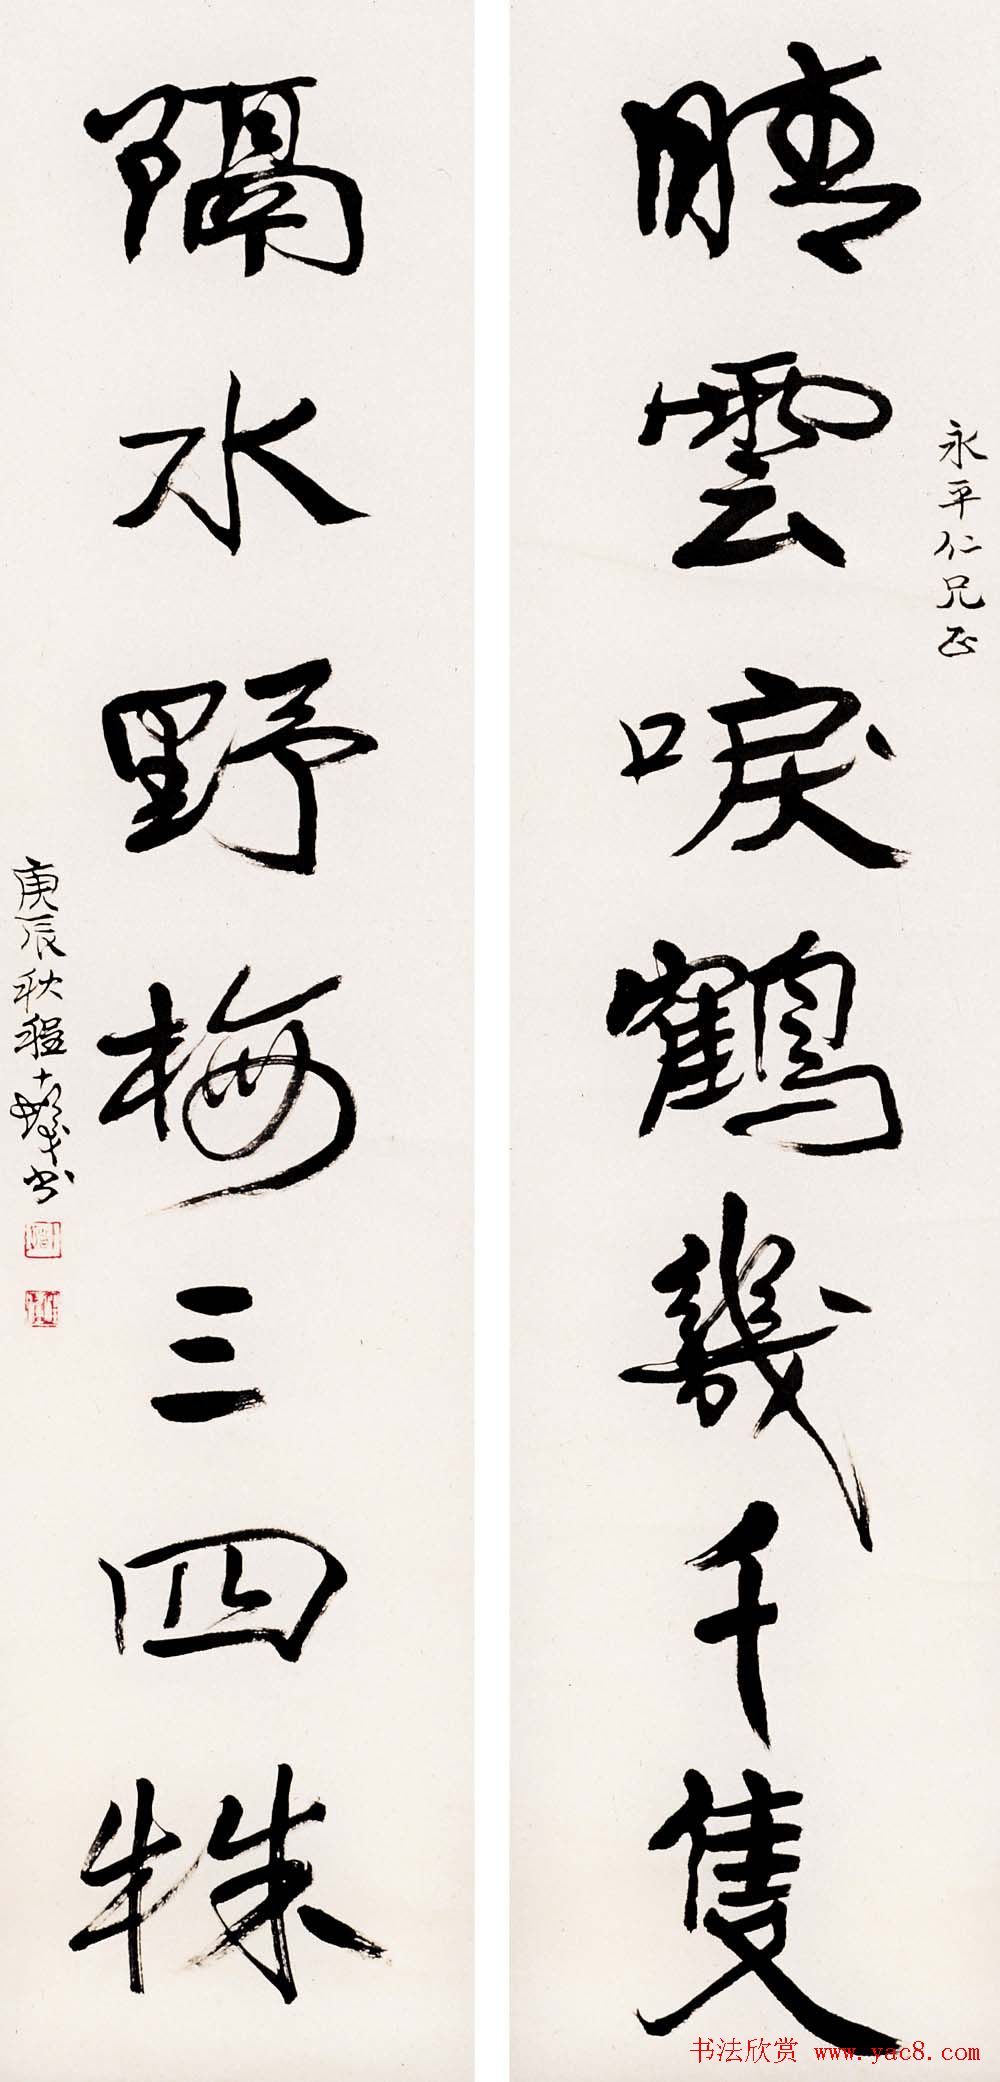 永平仁兄正
晴雲唳鶴幾千隻
隔水野梅三四株
庚辰秋程十髮书
书法欣赏 www.yac8.com